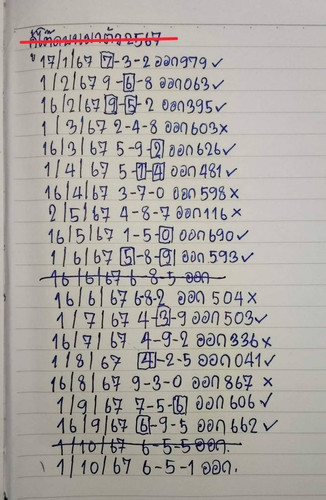 17/1/67 7-3-2 ออก 979 ✓
1/2/67 9-6-8 ออก 063 ✓
16/2/67 9-5-2 ออก 395 ✓
1/3/67 2-4-8 ออก 603 ×
16/3/67 5-9-2 ออก 626 ✓
1/4/67 5-1-4 ออก 481 ✓
16/4/67 3-7-0 ออก 598 ×
2/5/67 4-8-7 ออก 116 ×
16/5/67 1-5-0 ออก 690 ✓
1/6/67 5-8-9 ออก 593 ✓
16/6/67 6-8-5 ออก
16/6/67 6-8-2 ออก 504 ×
1/7/67 4-3-9 ออก 503 ✓
16/7/67 4-9-2 ออก 336 ×
1/8/67 4-2-5 ออก 041 ✓
16/8/67 9-3-0 ออก 867 ×
1/9/67 7-5-6 ออก 606 ✓
16/9/67 6-9-5 ออก 662 ✓
1/10/67 6-5-5 ออก.
1/10/67 6-5-1 ออก.